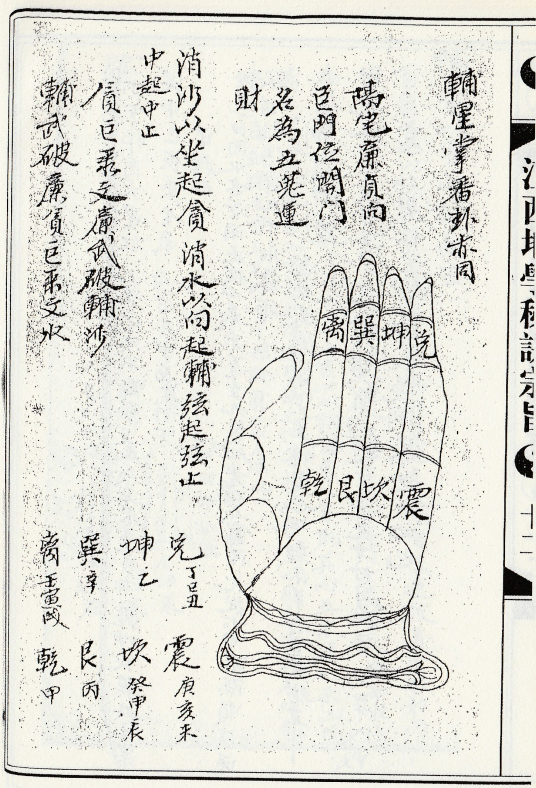 江西地學秘訣宗旨
十二
輔星掌番卦亦同
陽宅廉貞向
巨門位開门
名為五鬼運
財
离
巽
坤
兑
乾
艮
坎
震
消沙以坐起貪消水以向起輔弦起弦止
中起中止
貪巨彔文廉武破輔沙
輔武破廉貪巨彔文水
兑丁巳丑
震庚亥未
坤乙
坎癸申辰
巽辛
艮丙
离壬寅戌
乾甲